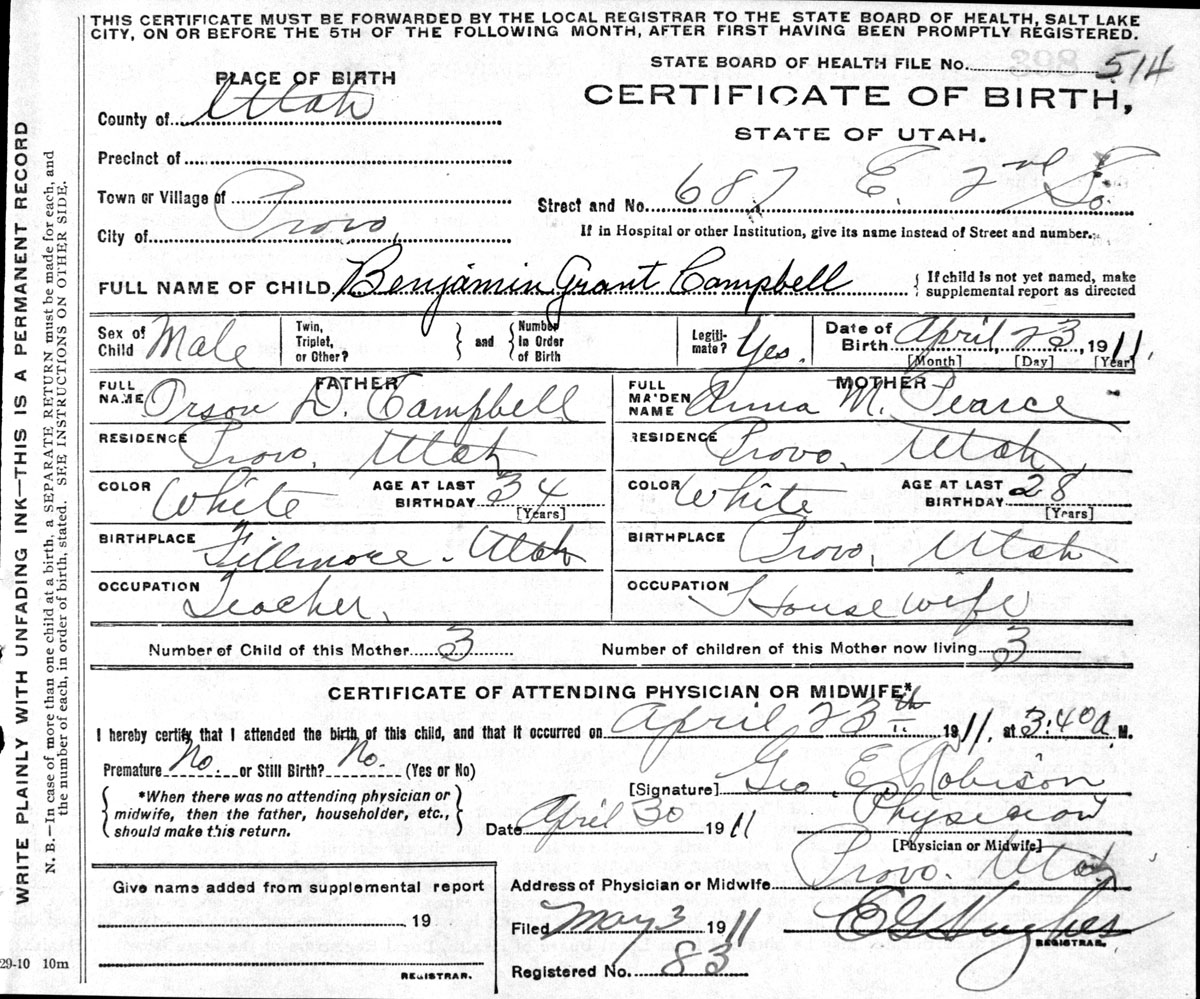 THIS CERTIFICATE MUST BE FORWARDED BY THE LOCAL REGISTRAR TO THE STATE BOARD OF HEALTH, SALT LAKE
CITY, ON OR BEFORE THE 5TH OF THE FOLLOWING MONTH, AFTER FIRST HAVING BEEN PROMPTLY REGISTERED.
WRITE PLAINLY WITH UNFADING INK—THIS IS A PERMANENT RECORD
N. B.—In case of more than one child at a birth, a SEPARATE RETURN must be made for each, and
the number of each, in order of birth, stated. SEE INSTRUCTIONS ON OTHER SIDE.
STATE BOARD OF HEALTH FILE NO. 514
PLACE OF BIRTH
CERTIFICATE OF BIRTH,
STATE OF UTAH.
County of Utah
Precinct of
Town or Village of
City of Provo,
Street and No. 687 E. 2nd So.
If in Hospital or other Institution, give its name instead of Street and number.
FULL NAME OF CHILD Benjamin Grant Campbell { If child is not yet named, make
supplemental report as directed
Sex of Child Male Twin, Triplet, or Other? } and { Number in Order of Birth Legiti-mate? Yes. Date of Birth April 23, 1911.
[Month] [Day] [Year]
FATHER MOTHER
FULL NAME Orson D. Campbell FULL MAIDEN NAME Anna M. Pearce
RESIDENCE Provo, Utah RESIDENCE Provo, Utah
COLOR White AGE AT LAST BIRTHDAY 34 [Years] COLOR White AGE AT LAST BIRTHDAY 28 [Years]
BIRTHPLACE Fillmore. Utah BIRTHPLACE Provo, Utah
OCCUPATION Teacher, OCCUPATION Housewife
Number of Child of this Mother 3 Number of children of this Mother now living 3
CERTIFICATE OF ATTENDING PHYSICIAN OR MIDWIFE*
I hereby certify that I attended the birth of this child, and that it occurred on April 23th 1911. at 3:40 a. M.
Premature No. or Still Birth? No. (Yes or No)
[Signature] Geo. E. Robison,
{ *When there was no attending physician or
midwife, then the father, householder, etc.,
should make this return. }
Date April 30 1911 Physician
[Physician or Midwife]
Address of Physician or Midwife Provo. Utah
Give name added from supplemental report
19
REGISTRAR.
Filed May 3 1911 Hughes
REGISTRAR.
Registered No. 83
29-10 10m